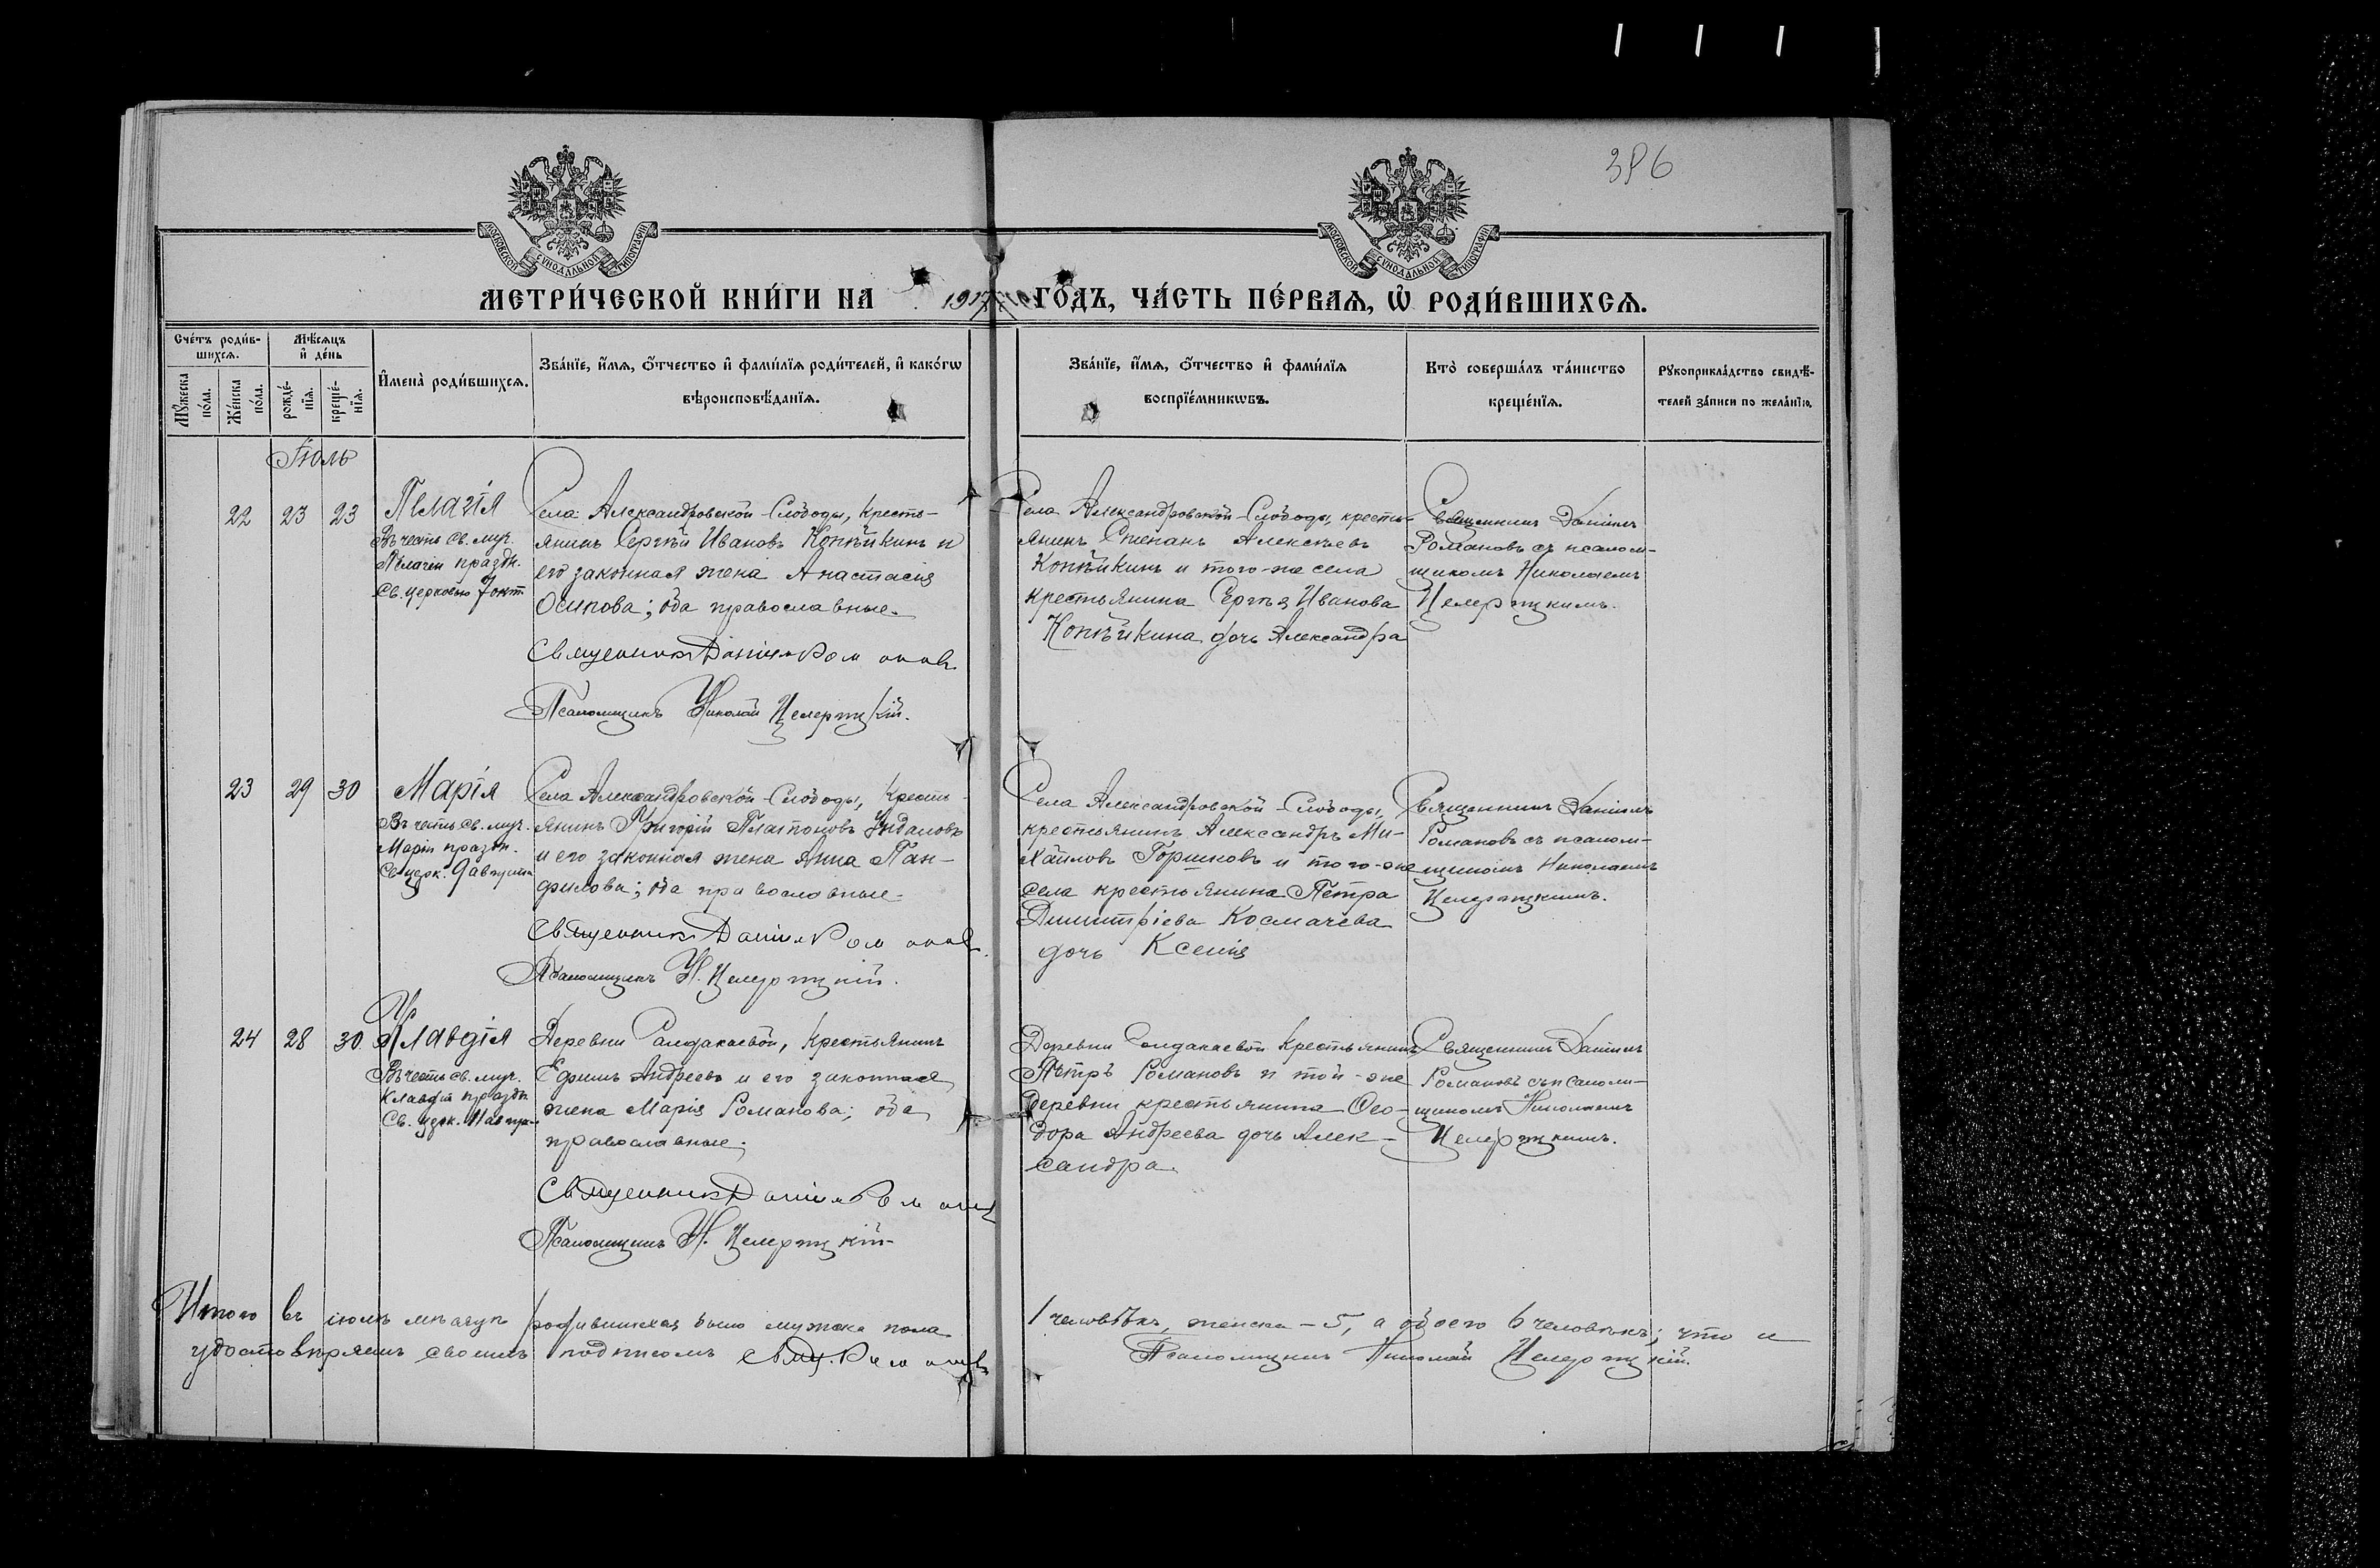 396
МОСКОВСКОЙ СѴНОДАЛЬНОЙ ТИПОГРАФІИ
МОСКОВСКОЙ СѴНОДАЛЬНОЙ ТИПОГРАФІИ
МЕТРИ́ЧЕСКОЙ КНИ́ГИ НА 1917 ГО́ДЪ, ЧА́СТЬ ПЕ́РВАѦ, Ѡ҆ РОДИ́ВШИХСѦ.
Сче́тъ роди́в-
шихсѧ.
Мѣ́сѧцъ
и҆ де́нь
Мꙋ́жеска
по́ла.
Же́нска
по́ла.
рожде́-
нїѧ.
креще́-
нїѧ.
И҆мена̀ роди́вшихсѧ.
Зва́нїе, и҆́мѧ, ѻ҆́тчество и҆ фами́лїѧ роди́телей, и҆ како́гѡ
вѣроисповѣ́данїѧ.
Зва́нїе, и҆́мѧ, ѻ҆́тчество и҆ фами́лїѧ
воспрїе́мникѡвъ.
Кто̀ соверша́лъ та́инство
креще́нїѧ.
Рꙋкоприкла́дство свидѣ́-
телей за́писи по жела́нїю.
Іюль
22 23 23
Пелагія
Въ честь св. муч.
Пелагіи праздн.
св. церковью 7 окт.
Села Александровской-Слободы, Кресть-
янинъ Сергѣй Ивановъ Копѣйкинъ и
его законная жена Анастасія
Осипова; оба православные.
Священникъ Даніилъ Романовъ
Псаломщикъ Николай Целерицкій.
Села Александровской-Слободы, кресть-
янинъ Степанъ Алексѣевъ
Копѣйкинъ и того-же села
крестьянина Сергѣя Иванова
Копѣйкина дочь Александра
Священникъ Даніилъ
Романовъ съ псалом-
щикомъ Николаемъ
Целерицкимъ.
23 29 30
Марія
Въ честь св. муч.
Маріи праздн.
Св. церк. 9 августа
Села Александровской-Слободы, Кресть-
янинъ Григорій Платоновъ Ундаловъ
и его законная жена Анна Пан-
филова; оба православные.
Священникъ Даніилъ Романовъ
Псаломщикъ Н. Целерицкій.
Села Александровской-Слободы,
крестьянинъ Александръ Ми-
хайловъ Горшковъ и того-же
села крестьянина Петра
Димитріева Космачева
дочь Ксенія
Священникъ Даніилъ
Романовъ съ псалом-
щикомъ Николаемъ
Целерицкимъ.
24 28 30
Клавдія
Въ честь св. муч.
Клавдіи праздн.
Св. церк.
Деревни Салдакаевой, Крестьянинъ
Ефимъ Андреевъ и его законная
жена Марія Романова; оба
православные.
Священникъ Даніилъ Романовъ
Псаломщикъ Н. Целерицкій.
Деревни Солдакаевой Крестьянинъ
Петръ Романовъ и той-же
деревни крестьянина Ѳео-
дора Андреева дочь Алек-
сандра.
Священникъ Даніилъ
Романовъ съ псалом-
щикомъ Николаемъ
Целерицкимъ.
Итого въ іюлѣ мѣсяцѣ родившихся было мужска пола 1 человѣкъ, женска - 5, а обоего 6 человѣкъ; что и
удостовѣряемъ своимъ подписомъ Свящ. Романовъ Псаломщикъ Николай Целерицкій.